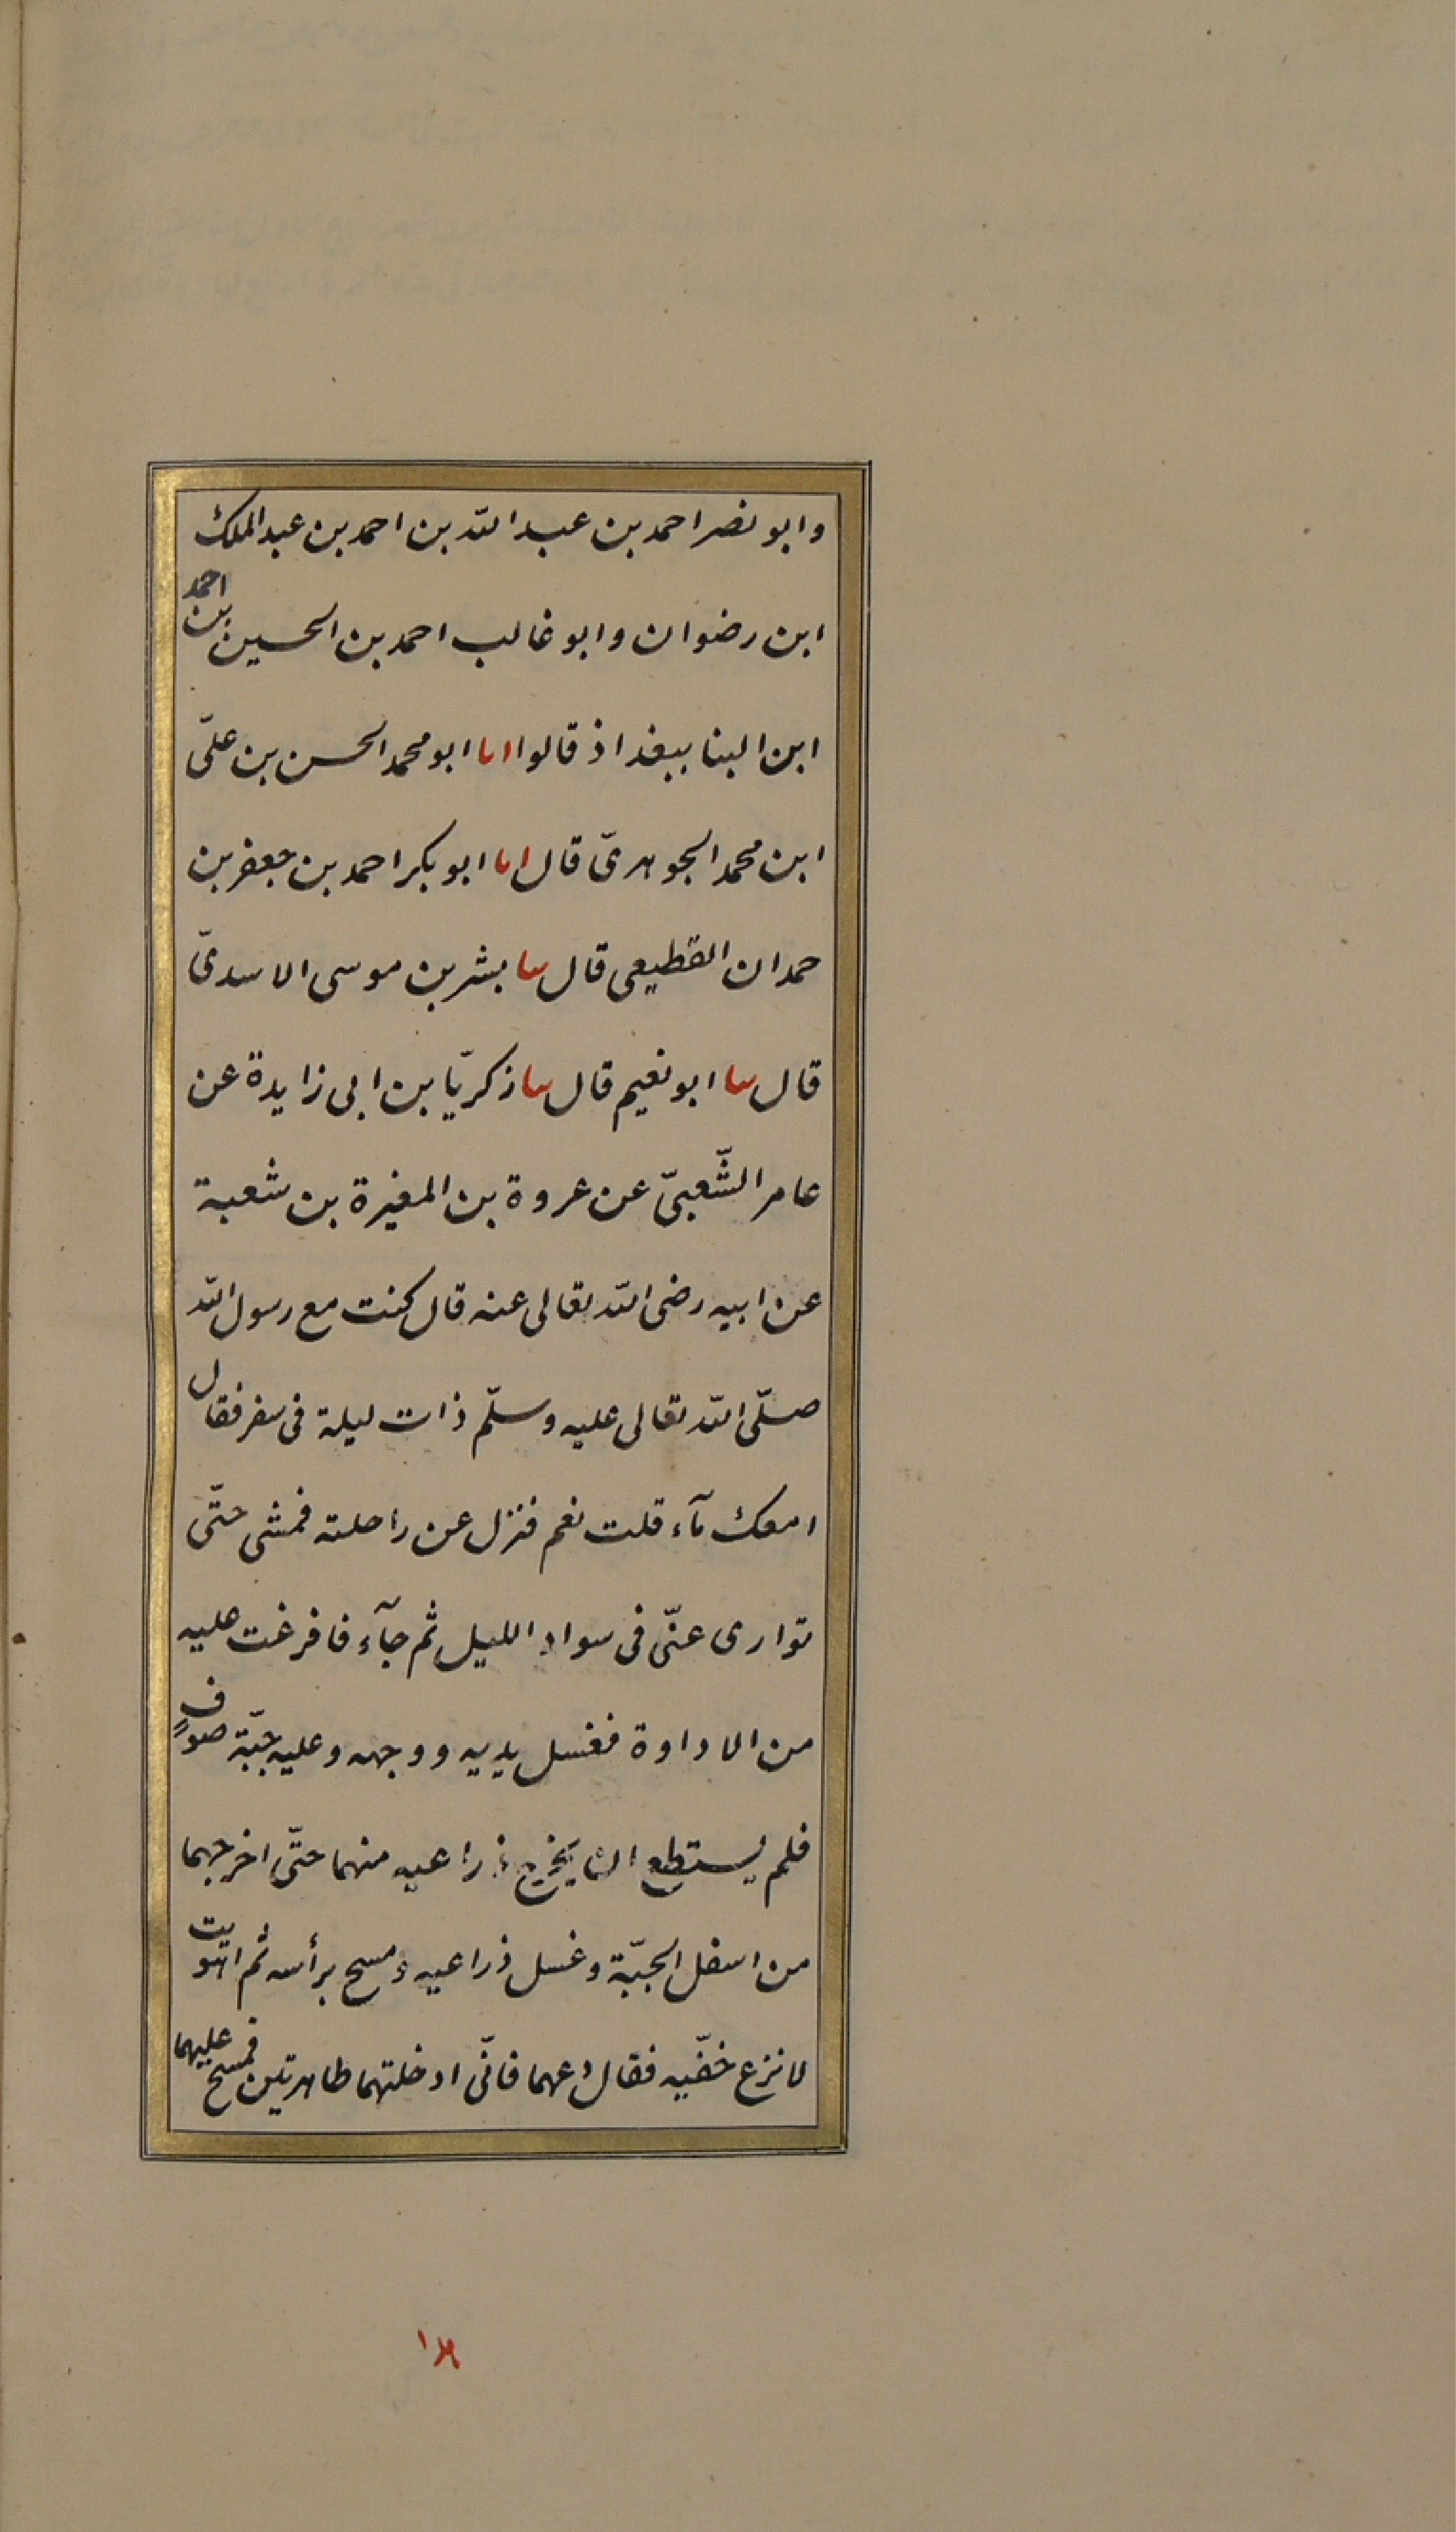 وابو نصر احمد بن عبد الله بن احمد بن عبد الملك
ابن رضوان وابو غالب احمد بن الحسين بن احمد
ابن البنا ببغداذ قالوا انا ابو محمد الحسن بن علىّ
ابن محمد الجوهرىّ قال انا ابو بكر احمد بن جعفر بن
حمدان القطيعى قال سا بشر بن موسى الاسدىّ
قال سا ابو نعيم قال سا زكريّا بن ابى زايدة عن
عامر الشّعبىّ عن عروة بن المغيرة بن شعبة
عن ابيه رضى الله تعالى عنه قال كنت مع رسول الله
صلّى الله تعالى عليه وسلّم ذات ليلة فى سفر فقال
امعك مآء قلت نعم فنزل عن راحلته فمشى حتّى
توارى عنّى فى سواد الليل ثم جآء فافرغت عليه
من الاداوة فغسل يديه ووجهه وعليه جبّة صوفٍ
فلم يستطع ان يخرج ذراعيه منها حتّى اخرجهما
من اسفل الجبّة وغسل ذراعيه ومسح برأسه ثم اهويت
لانزع خفّيه فقال دعهما فانّى ادخلتهما طاهرتين فمسح عليهما